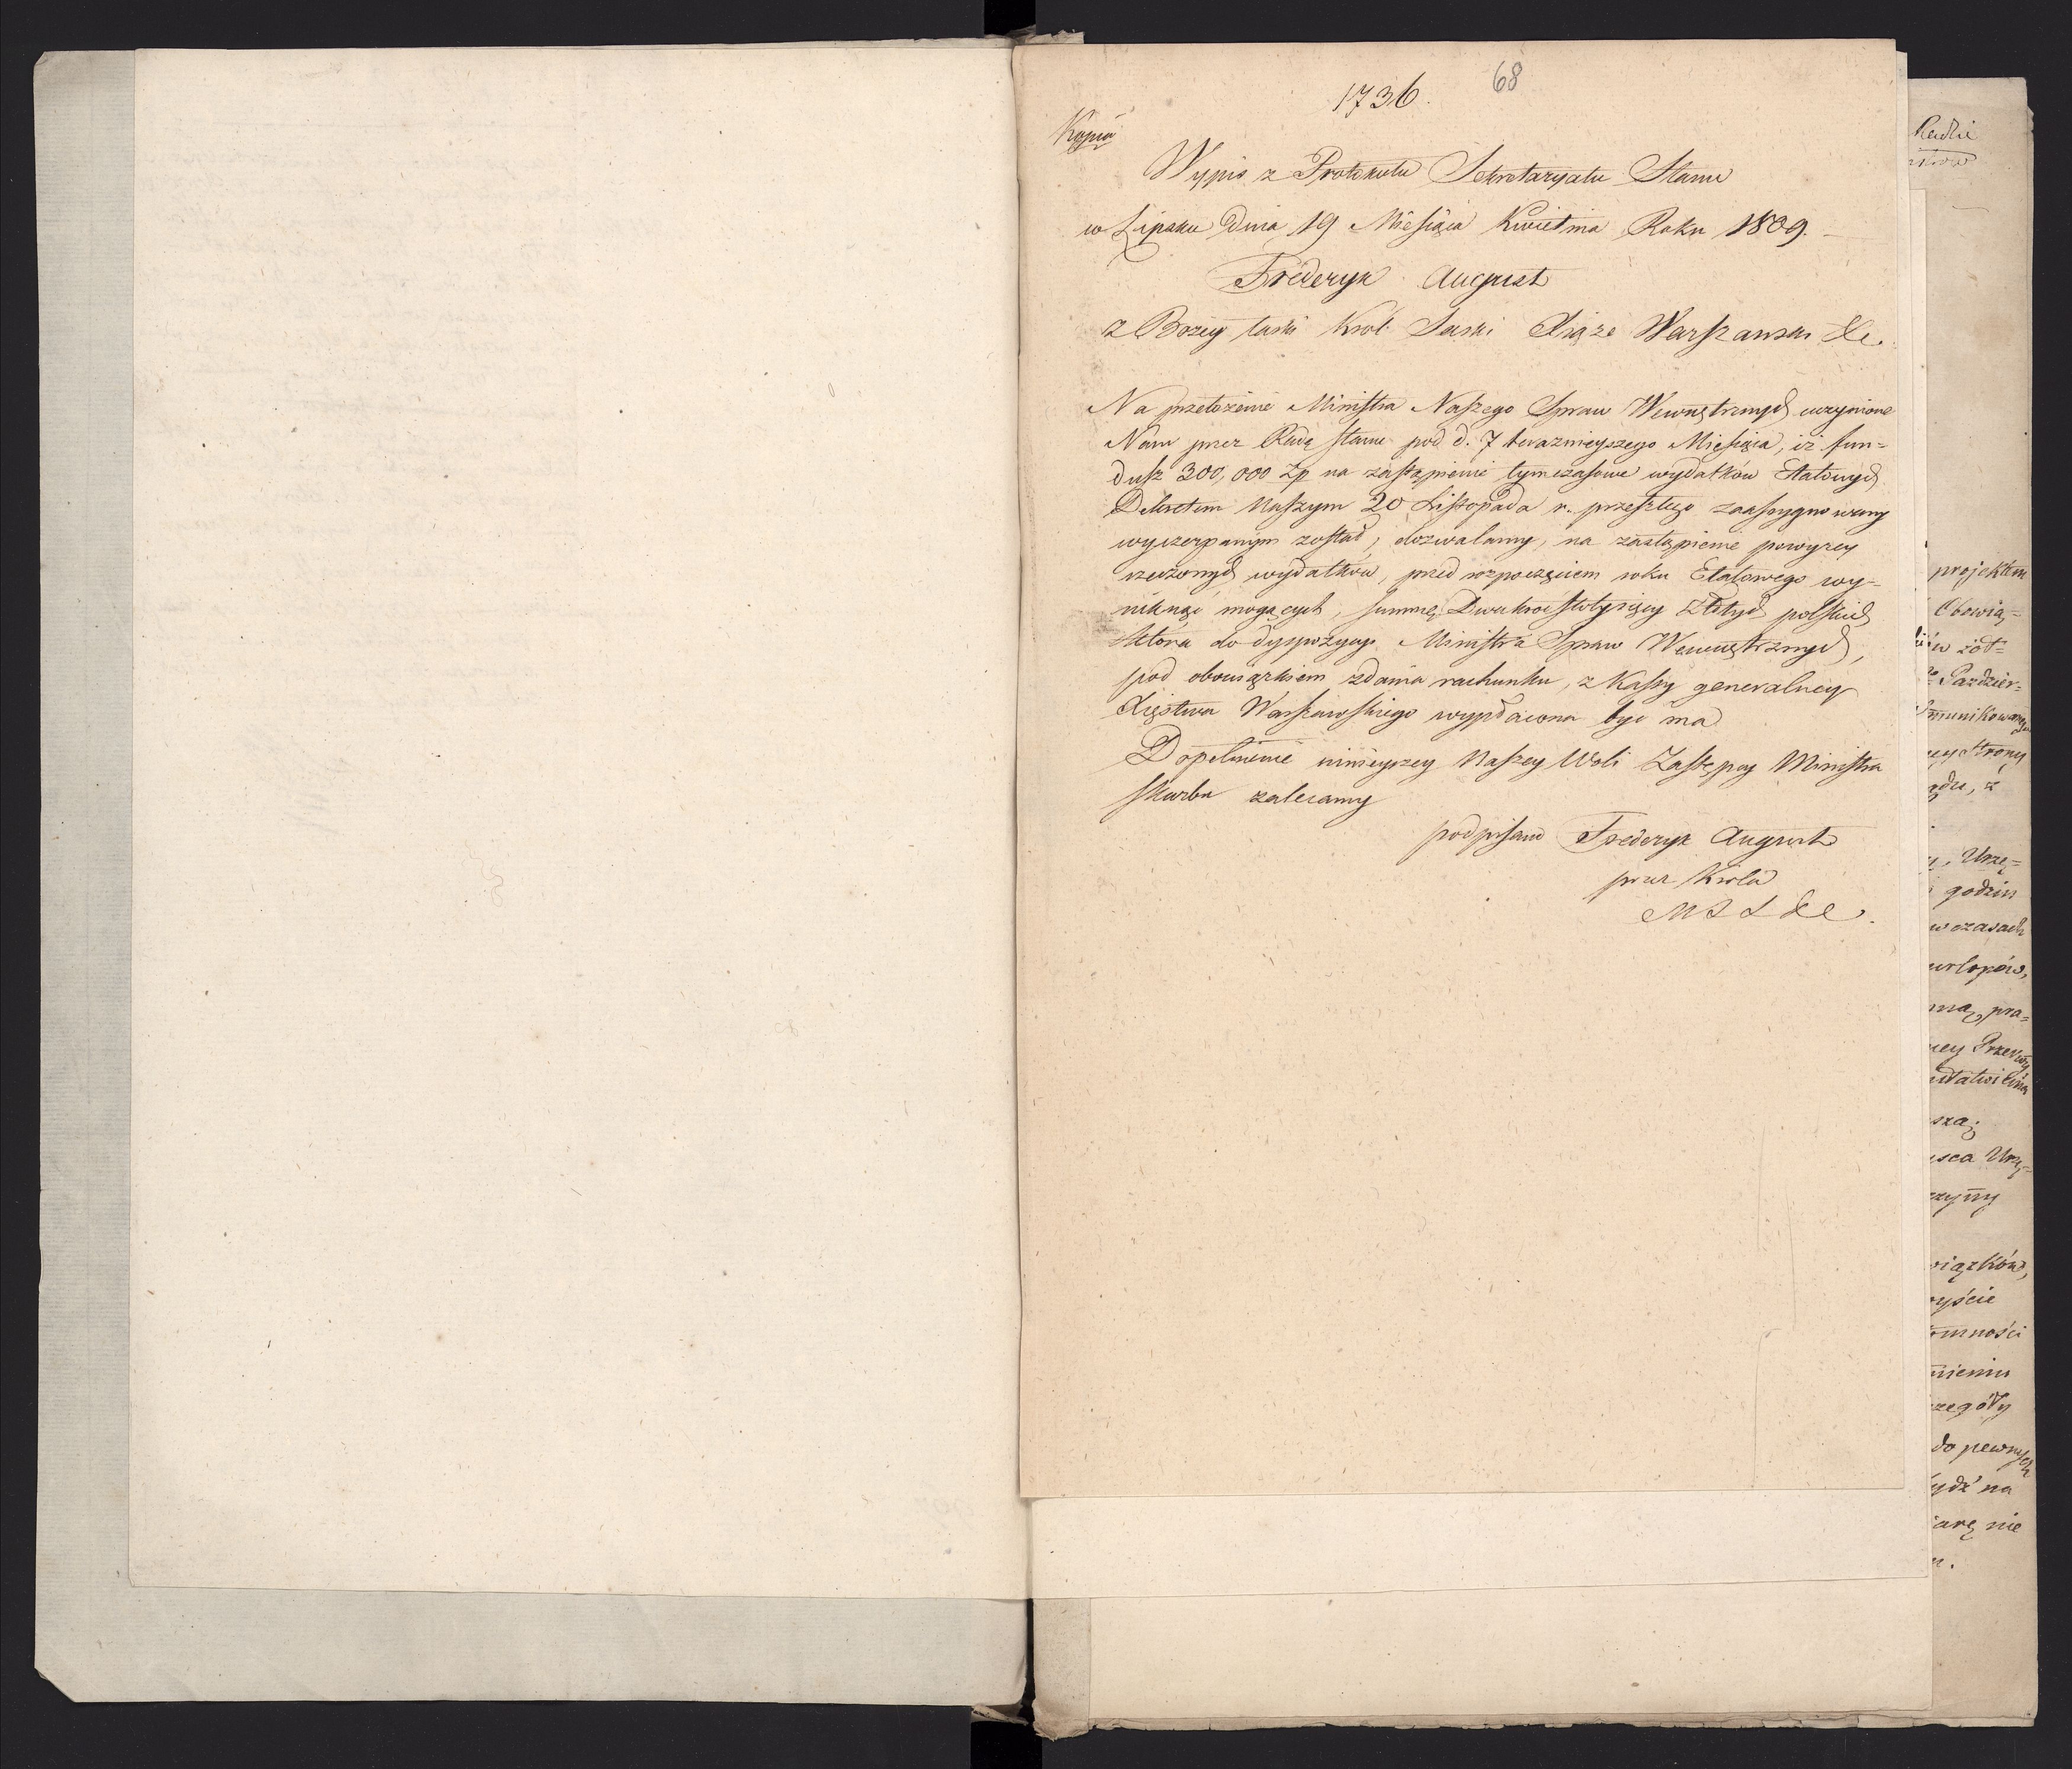 68
1736.
Kopia
Wypis z Protokułu Sekretaryatu Stanu
w Lipsku Dnia 19 Miesiąca Kwietnia Roku 1809.
Frederyk August
z Bożey łaski Krol Saski Xiąże Warszawski &c.
Na przełożenie Ministra Naszego Spraw Wewnętrznych uczynione
Nam przez Radę Stanu pod d. 7 teraznieyszego Miesiąca, iż fun=
dusz 300,000 Zp na zastąpienie tymczasowe wydatków Etatowych
Dekretem Naszym 20 Listopada r. przeszłego zaassygnowany
wyczerpanym został, dozwalamy, na zastąpienie powyżey
rzeczonych wydatków, przed rozpoczęciem roku Etatowego wy=
niknąć mogących, summę Dwukroćstotysięcy Złotych polskich
która do dyspozycyi Ministra Spraw Wewnętrznych,
pod obowiązkiem zdania rachunku, z Kassy generalney
Xięstwa Warszawskiego wypłacona być ma
Dopełnienie ninieyszey Naszey Woli Zastępcy Ministra
Skarbu zalecamy
podpisano Frederyk August
przez Króla
M S S &c.
projektem
Obowią=
żół=
Pazdzier=
Strony
Urzę=
godzin
w czasach
urlopów,
pra=
Urzę=
do pewnych
na
nie